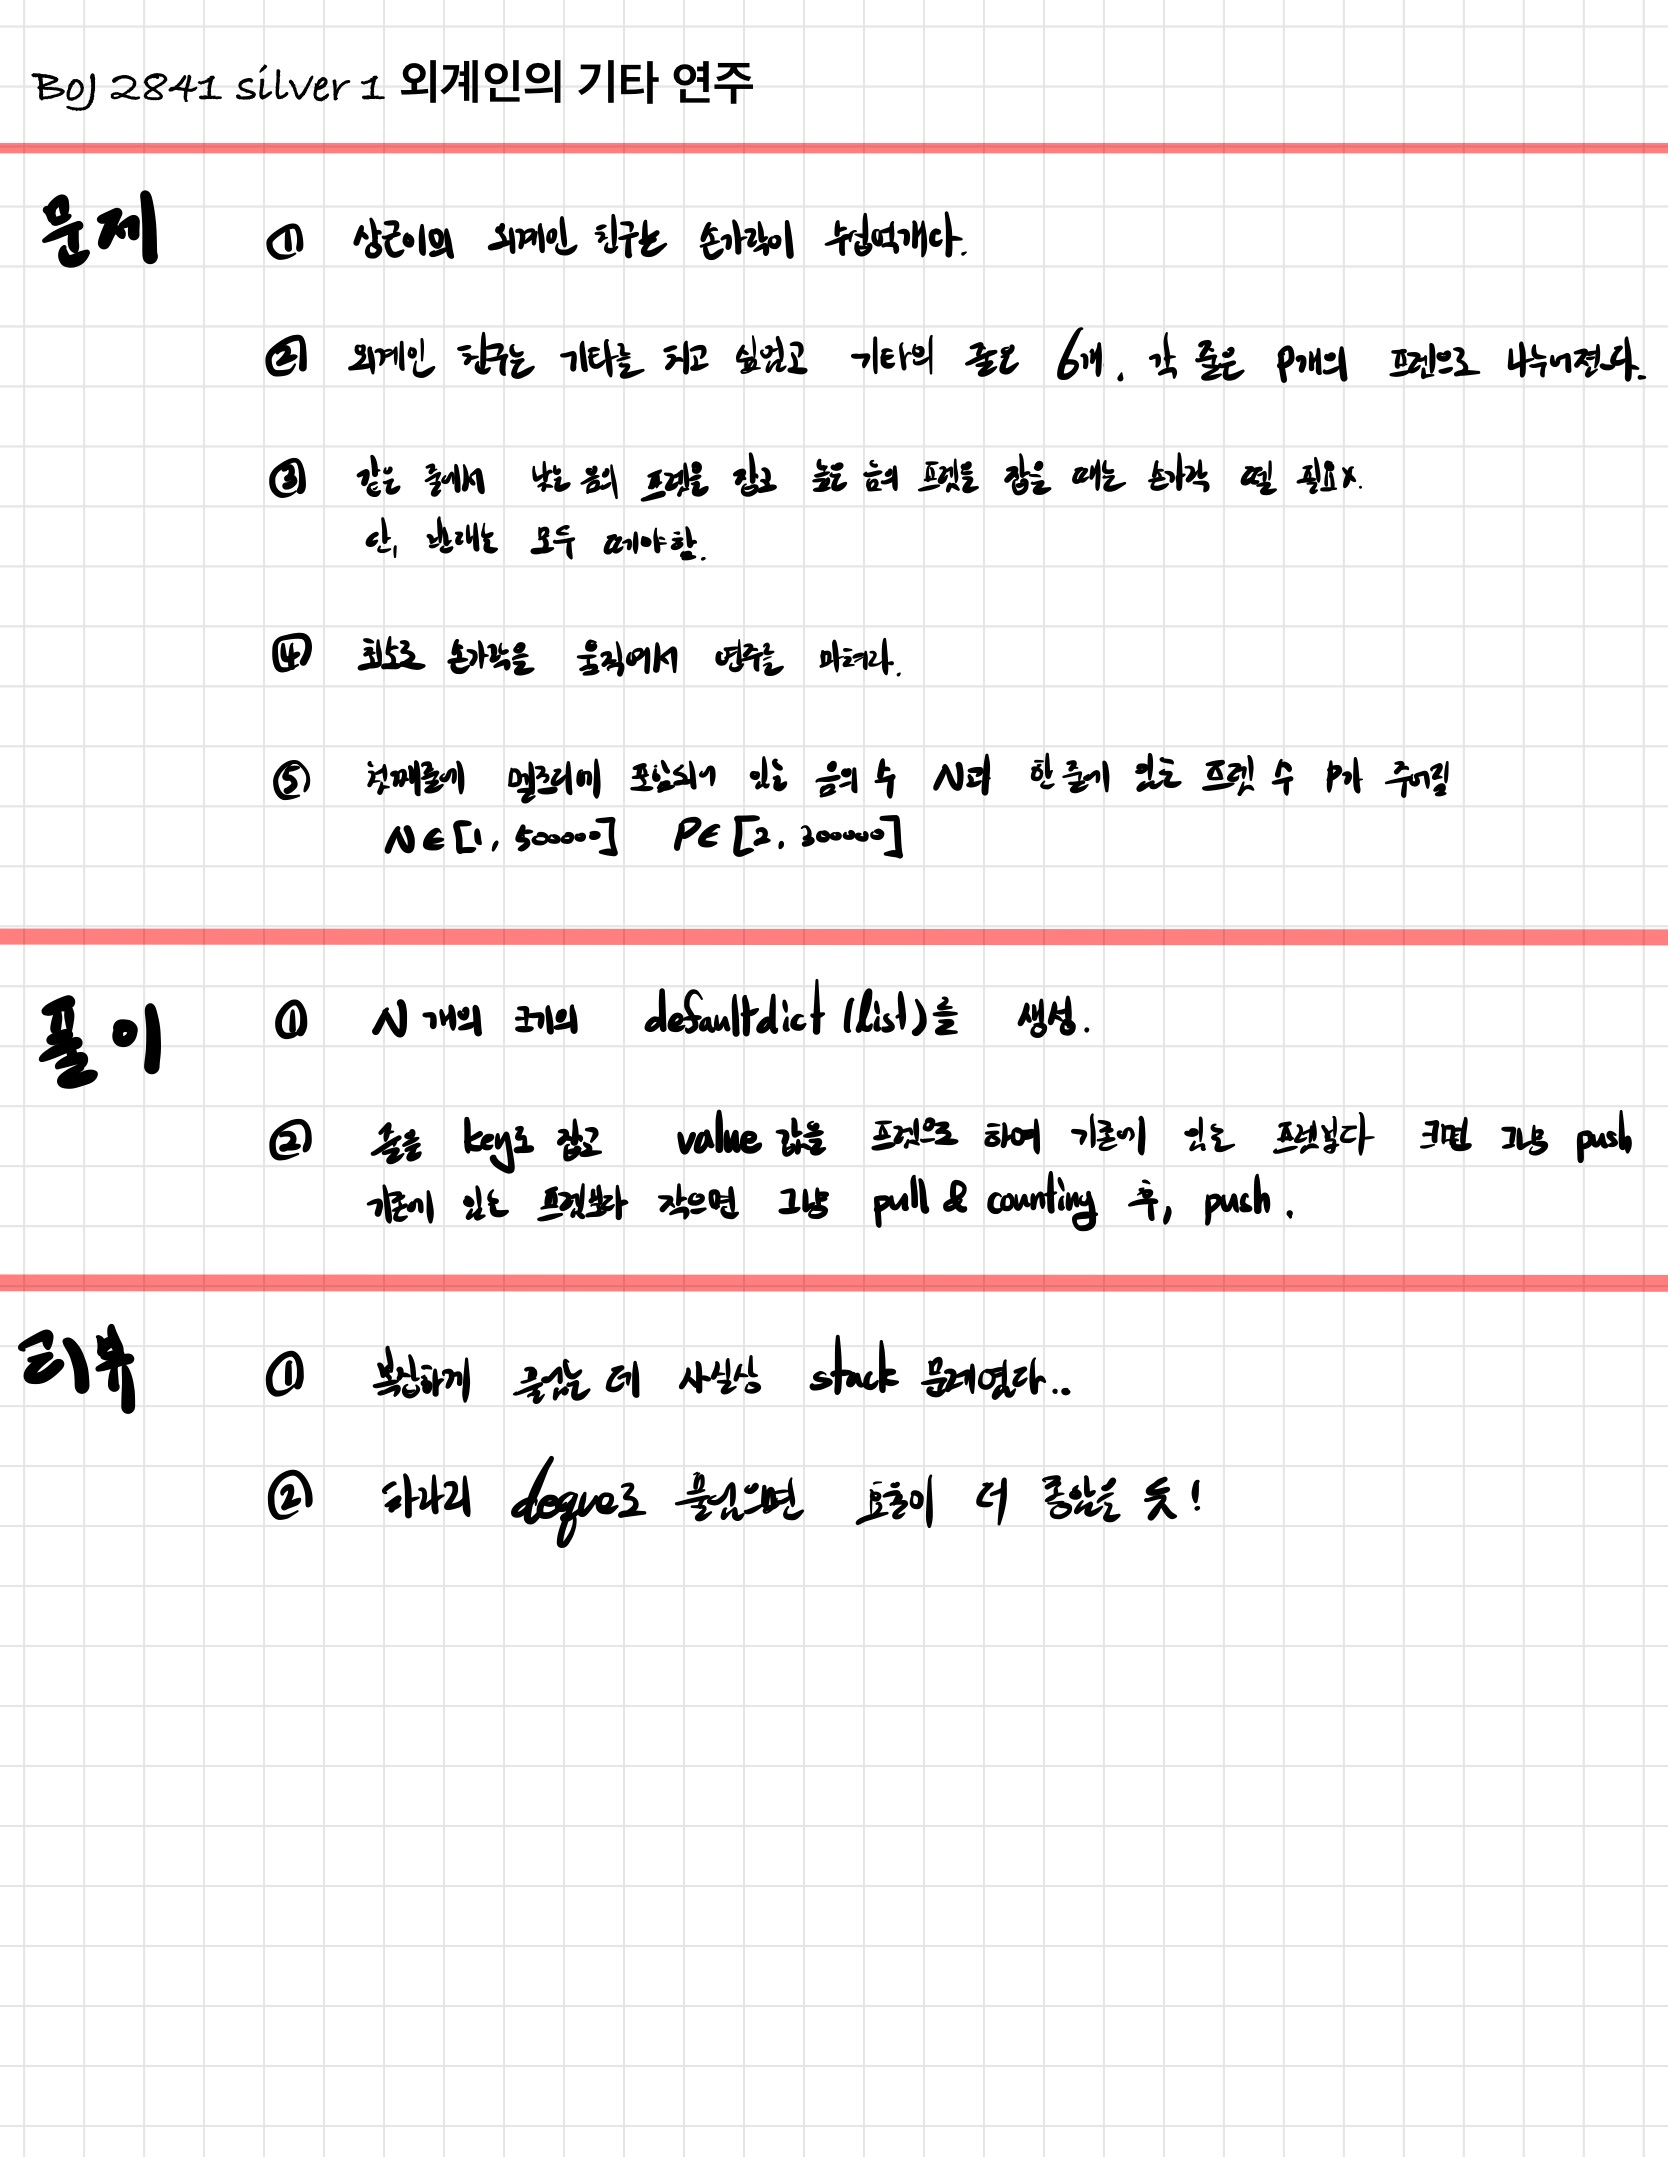 BOJ 2841 silver 1 외계인의 기타 연주
문제
① 상근이의 외계인 친구는 손가락이 수십억개다.
② 외계인 친구는 기타를 치고 싶었고 기타의 줄은 6개, 각 줄은 P개의 프렛으로 나누어졌다.
③ 같은 줄에서 낮은 음의 프렛을 잡고 높은 음의 프렛을 잡을 때는 손가락 뗄 필요x.
단, 반대는 모두 떼야함.
④ 최소로 손가락을 움직여서 연주를 마쳐라.
⑤ 첫째줄에 멜로디에 포함되어 있는 음의 수 N과 한 줄에 있는 프렛 수 P가 주어짐
N∈[1, 500000] P∈[2, 300000]
풀이
① N개의 크기의 defaultdict (list)를 생성.
② 줄을 key로 잡고 value 값을 프렛으로 하여 기존에 있는 프렛보다 크면 그냥 push
기존에 있는 프렛보다 작으면 그냥 pull & counting 후, push.
리뷰
① 복잡하게 풀었는 데 사실상 stack 문제였다..
② 차라리 deque로 풀었으면 효율이 더 좋았을 듯!